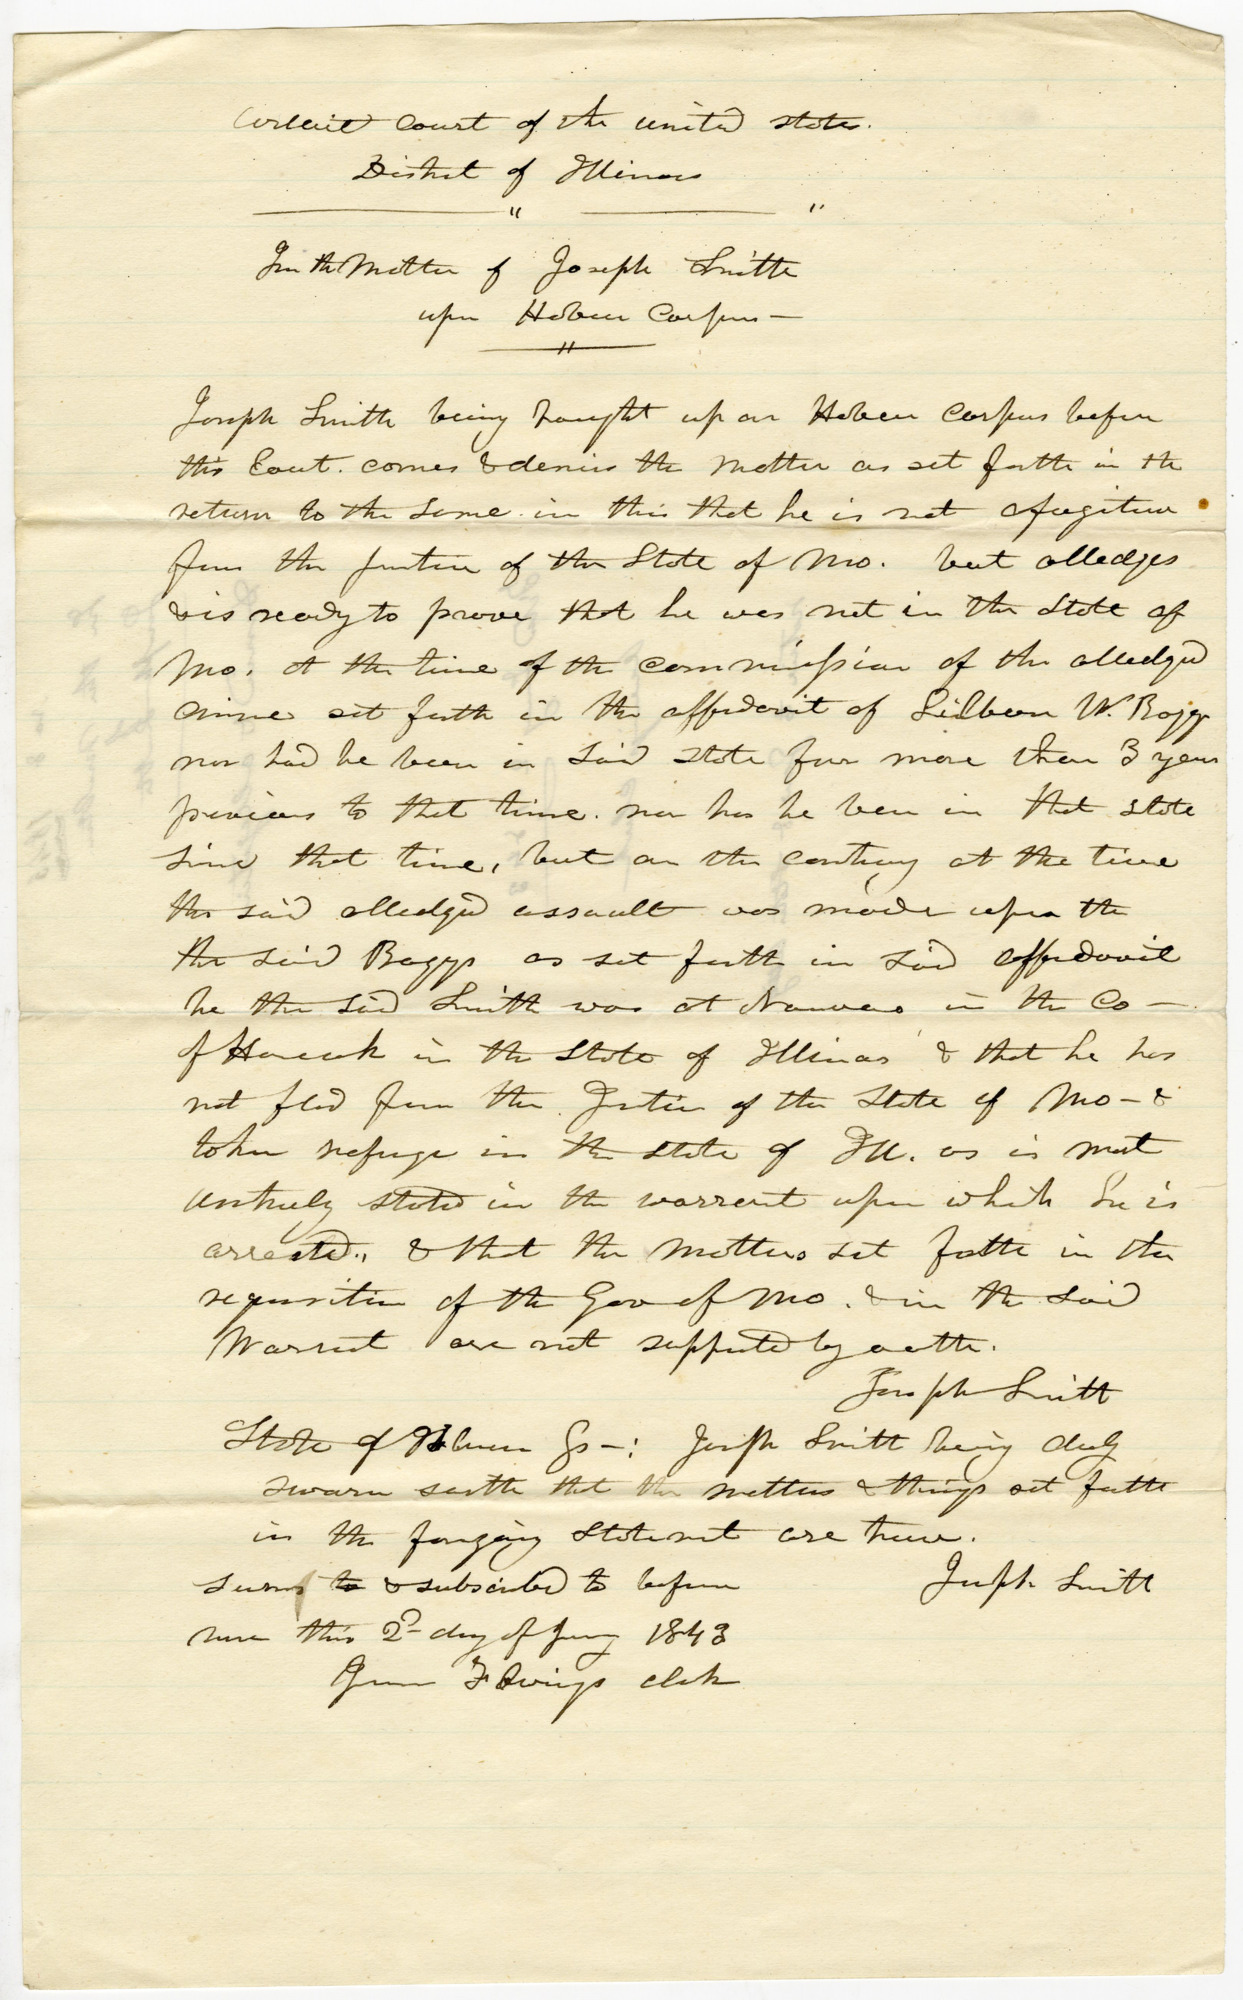 Circuit Court of the united states.
District of Illinois
" "
In the Matter of Joseph Smith
upon Habeus Corpus —
"
Joseph Smith being brought up on Habeus Corpus before
this Court. comes & denies the matter as set forth in the
return to the same in this that he is not a fugitive
from the justice of the State of Mo. but alledges
& is ready to prove that he was not in the State of
Mo. at the time of the commission of the alledged
crime set forth in the affidavit of Lilburn W. Boggs
nor had he been in said State for more than 3 years
previous to that time. nor has he been in that State
since that time, but on the contrary at the time
the said alledged assault was made upon the
the said Boggs as set forth in said affidavit
he the said Smith was at Nauvoo in the Co —
of Hancock in the State of Illinois & that he has
not fled from the Justice of the State of Mo — &
taken refuge in the state of Ill. as is most
untruly stated in the warrent upon which he is
arrested., & that the matters set forth in the
requisition of the Gov of Mo. & in the said
Warrent are not supported by oath.
Joseph Smith
State of Illinois Ss —: Joseph Smith being duly
sworn saith that the matters & things set forth
in the foregoing Statement are true.
Sworn to & subscribed to before
Joseph Smith
me this 2d day of Jany 1843
James F Owings clerk